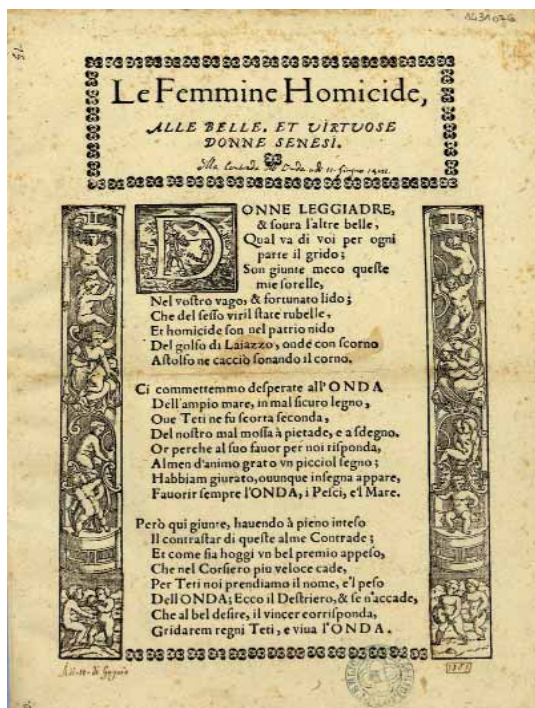 Le Femmine Homicide,
ALLE BELLE, ET VIRTVOSE
DONNE SENESI.
DONNE LEGGIADRE,
& soura l'altre belle,
Qual va di voi per ogni
parte il grido;
Son giunte meco queste
mie sorelle,
Nel vostro vago, & fortunato lido;
Che del sesso viril state rubelle,
Et homicide son nel patrio nido
Del golfo di Laiazzo, onde con scorno
Astolfo ne cacciò sonando il corno.
Ci commettemmo desperate all'ONDA
Dell'ampio mare, in mal sicuro legno,
Oue Teti ne fu scorta seconda,
Del nostro mal mossa à pietade, e a sdegno.
Or perche al suo fauor per noi risponda,
Almen d'animo grato vn picciol segno;
Habbiam giurato, ouunque insegna appare,
Fauorir sempre l'ONDA, i Pesci, e'l Mare.
Però qui giunte, hauendo à pieno inteso
Il contrastar di queste alme Contrade;
Et come sia hoggi vn bel premio appeso,
Che nel Corsiero piu veloce cade,
Per Teti noi prendiamo il nome, e'l peso
Dell'ONDA; Ecco il Destriero, & se n'accade,
Che al bel desire, il vincer corrisponda,
Gridarem regni Teti, e viua l'ONDA.